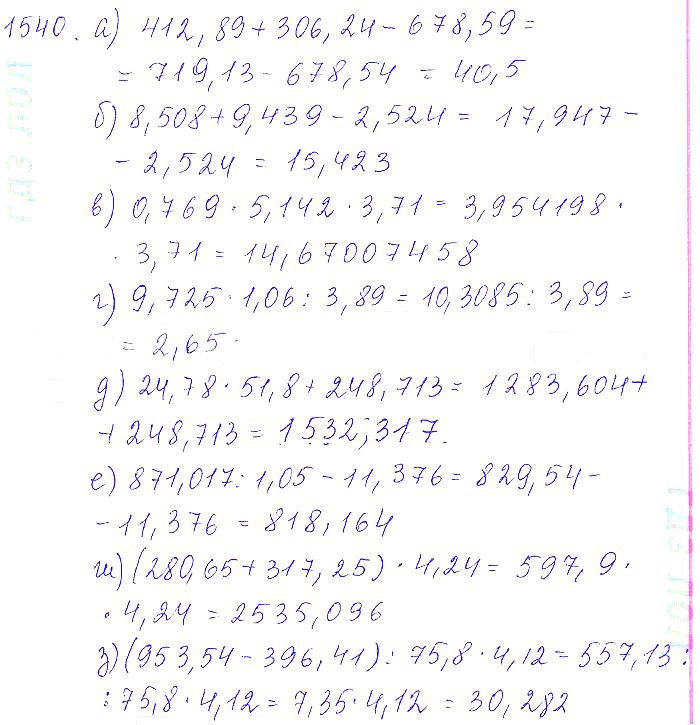 1540. а) 412,89 + 306,24 - 678,59 =
= 719,13 - 678,54 = 40,5
б) 8,508 + 9,439 - 2,524 = 17,947 -
- 2,524 = 15,423
в) 0,769 · 5,142 · 3,71 = 3,954198 ·
· 3,71 = 14,67007458
г) 9,725 · 1,06 : 3,89 = 10,3085 : 3,89 =
= 2,65.
д) 24,78 · 51,8 + 248,713 = 1283,604 +
+ 248,713 = 1532,317.
е) 871,017 : 1,05 - 11,376 = 829,54 -
- 11,376 = 818,164
ж) (280,65 + 317,25) · 4,24 = 597,9 ·
· 4,24 = 2535,096
з) (953,54 - 396,41) : 75,8 · 4,12 = 557,13 :
: 75,8 · 4,12 = 7,35 · 4,12 = 30,282
ГДЗ ЛОЛ